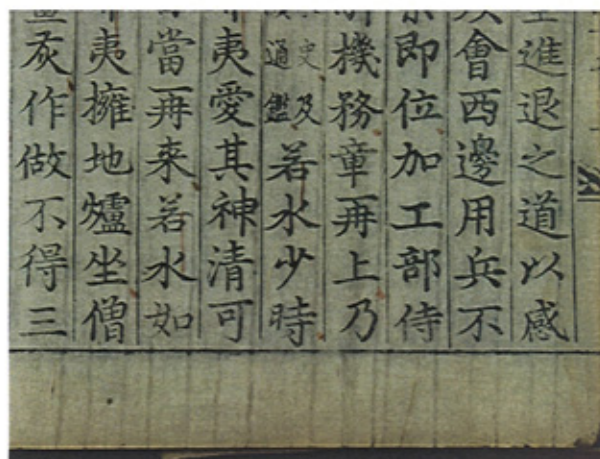 進退之道以感
會西邊用兵不
即位加工部侍
機務章再上乃
史及通鑑若水少時
夷愛其神清可
當再來若水如
夷擁地爐坐僧
灰作做不得三